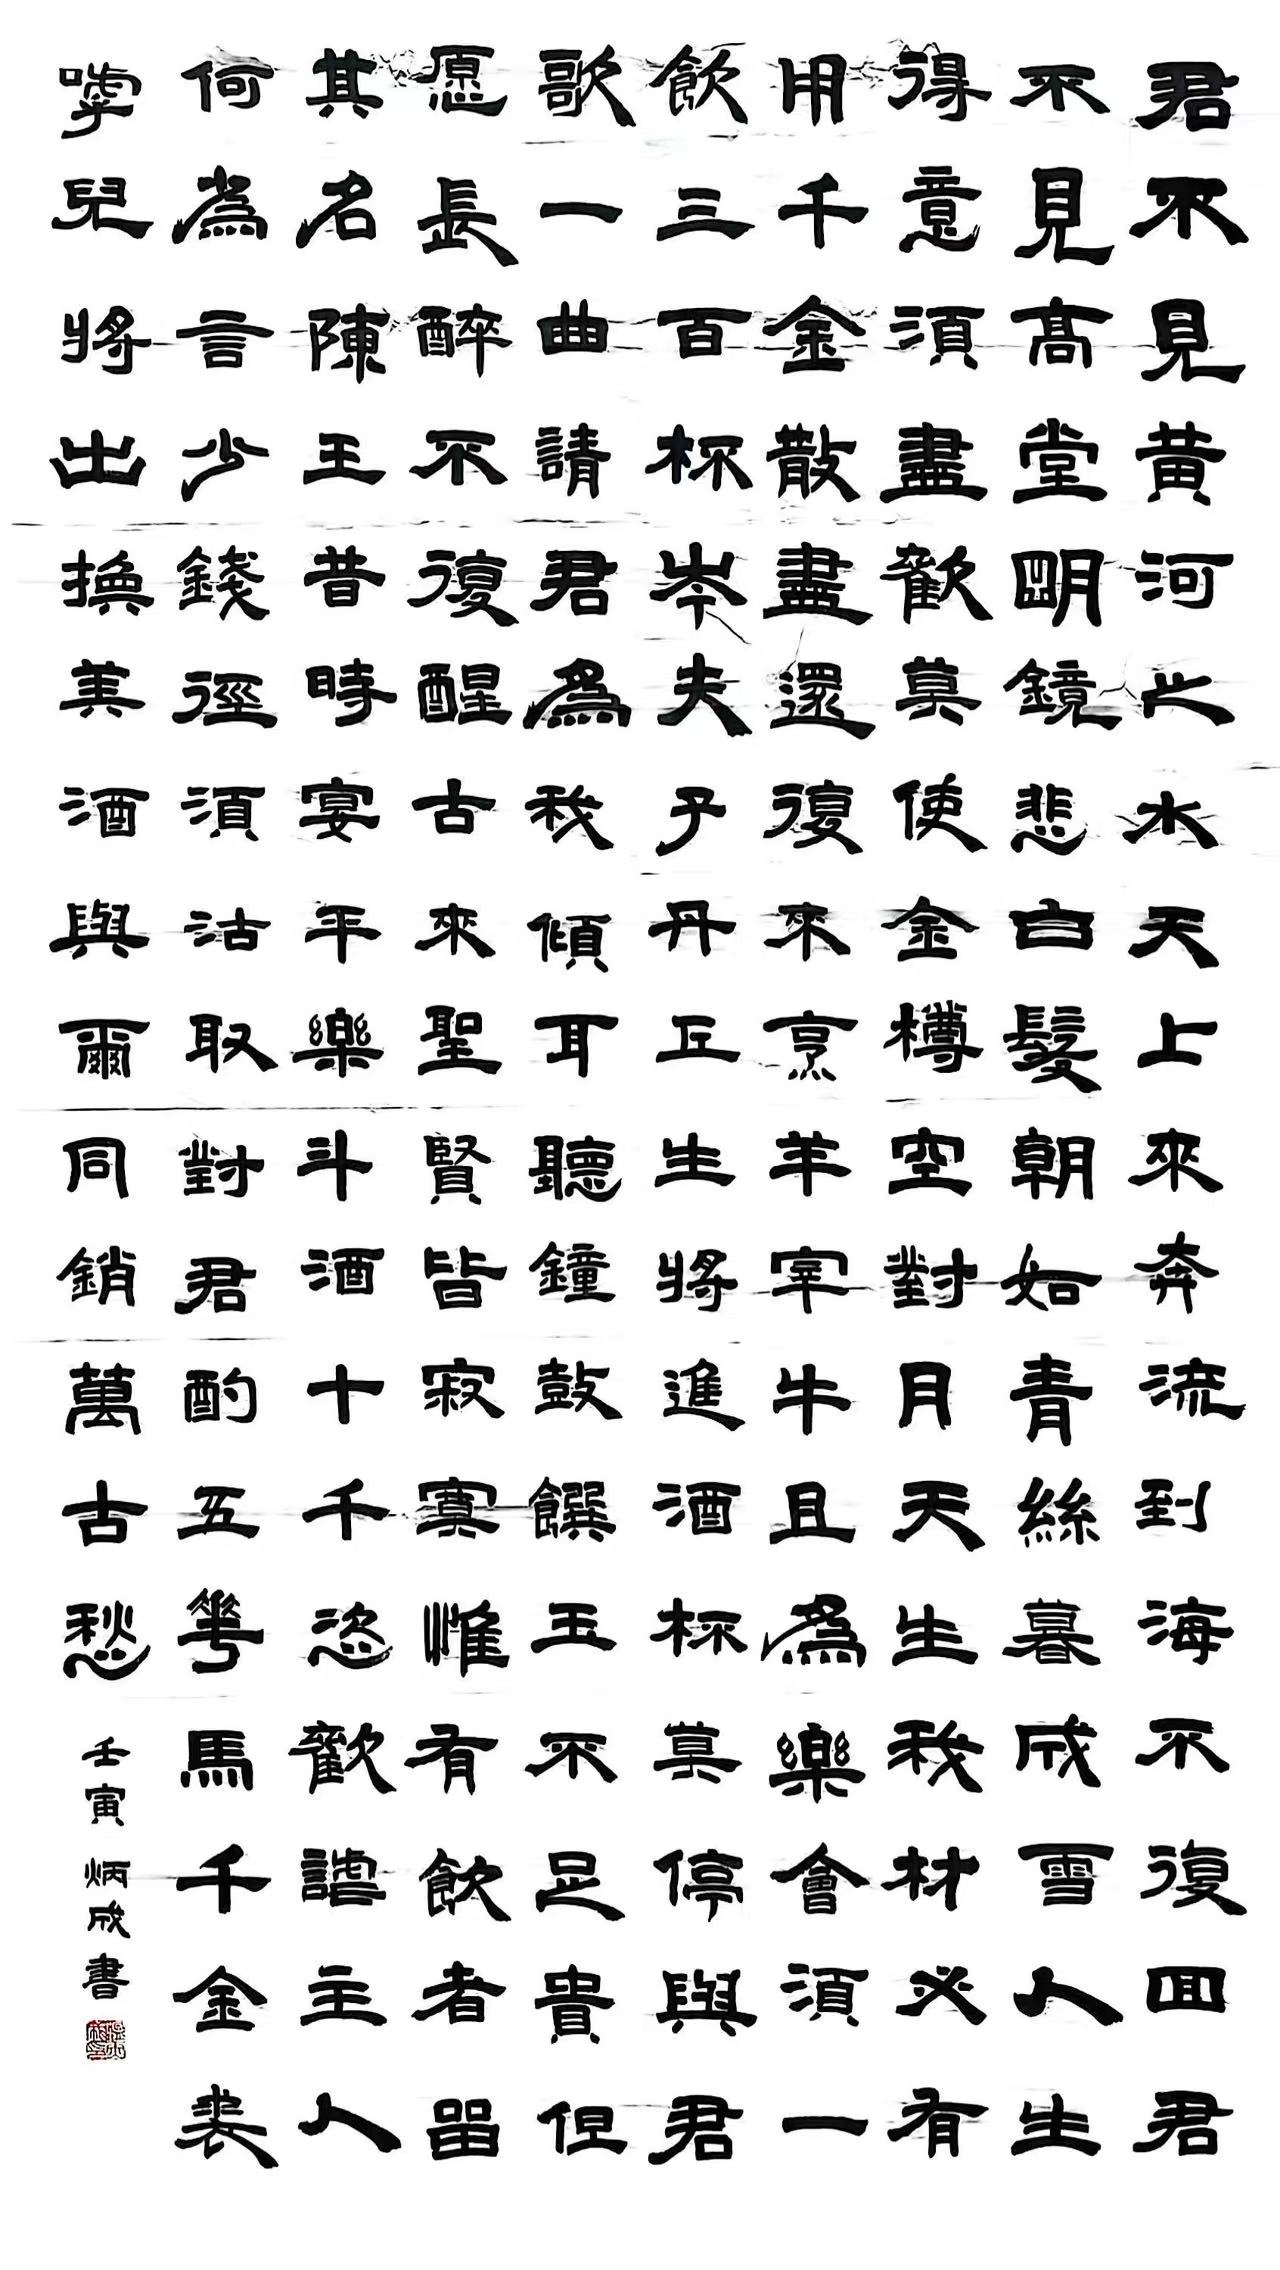 君不見黃河之水天上來奔流到海不復回君
不見高堂明鏡悲白髮朝如青絲暮成雪人生
得意須盡歡莫使金樽空對月天生我材必有
用千金散盡還復來烹羊宰牛且為樂會須一
飲三百杯岑夫子丹丘生將進酒杯莫停與君
歌一曲請君為我傾耳聽鐘鼓饌玉不足貴但
愿長醉不復醒古來聖賢皆寂寞惟有飲者留
其名陳王昔時宴平樂斗酒十千恣歡謔主人
何為言少錢徑須沽取對君酌五花馬千金裘
呼兒將出換美酒與爾同銷萬古愁
壬寅炳成書